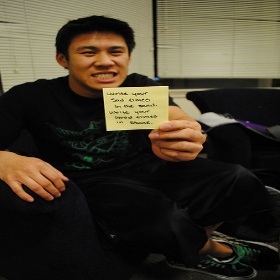 Write your
Sad times
in the sand.
Write your
Good times
in Stone.